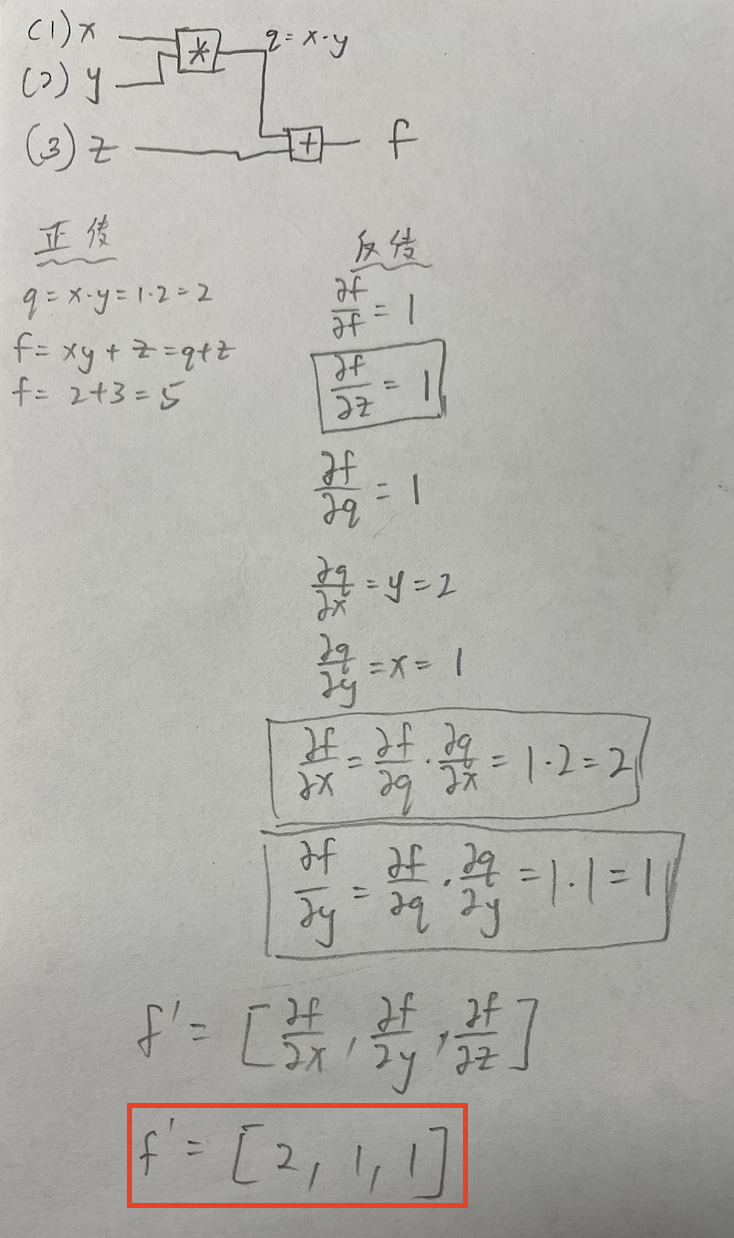 (1) x
* q = x·y
(2) y
(3) z
+ f
正传
q = x·y = 1·2 = 2
f = xy + z = q+z
f = 2+3 = 5
反传
∂f/∂f = 1
∂f/∂z = 1
∂f/∂q = 1
∂q/∂x = y = 2
∂q/∂y = x = 1
∂f/∂x = ∂f/∂q · ∂q/∂x = 1·2 = 2
∂f/∂y = ∂f/∂q · ∂q/∂y = 1·1 = 1
f' = [∂f/∂x, ∂f/∂y, ∂f/∂z]
f' = [2, 1, 1]